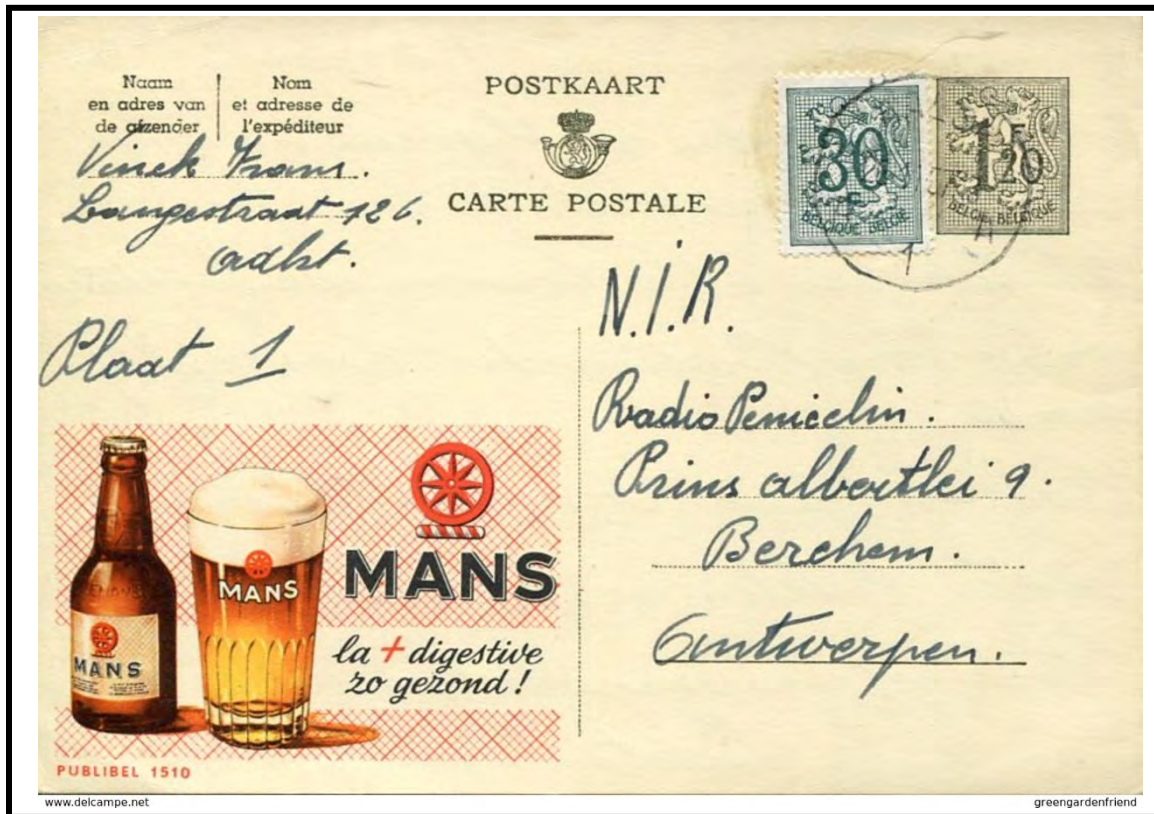 Naam
en adres van
de afzender
Nom
et adresse de
l'expéditeur
POSTKAART
CARTE POSTALE
30
BELGIQUE BELGIE
1F20
BELGIE BELGIQUE
Vinck Frans.
Langestraat 126.
Aalst.
Plaat 1
N.I.R.
Radio Penicelin.
Prins Albertlei 9.
Berchem.
Antwerpen.
MANS
MANS
MANS
la + digestive
zo gezond!
PUBLIBEL 1510
www.delcampe.net
greengardenfriend